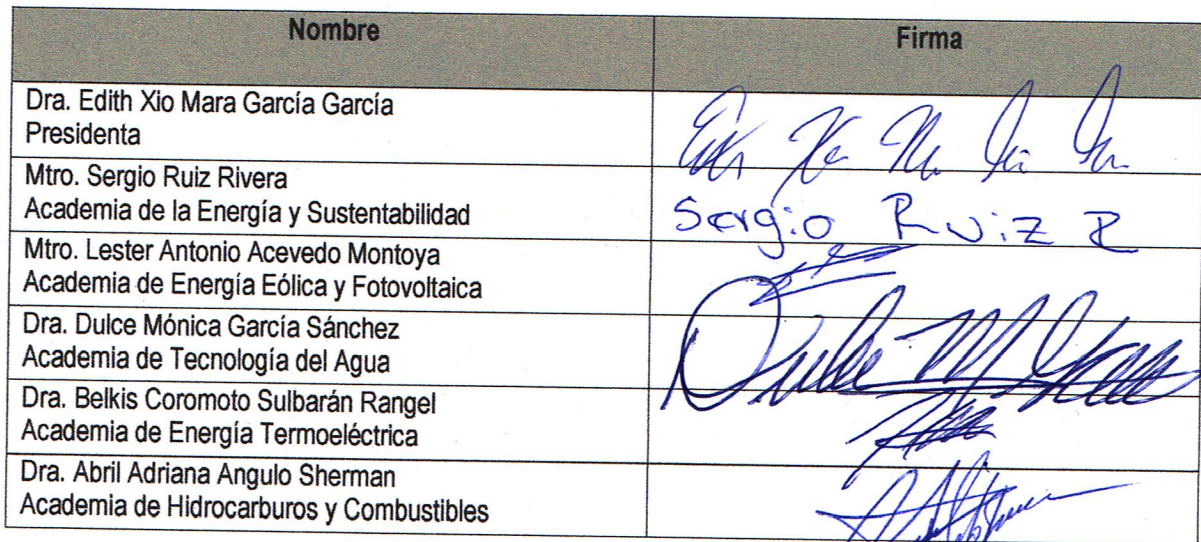 Nombre
Firma
Dra. Edith Xio Mara García García
Presidenta
Mtro. Sergio Ruiz Rivera
Academia de la Energía y Sustentabilidad
Sergio Ruiz R
Mtro. Lester Antonio Acevedo Montoya
Academia de Energía Eólica y Fotovoltaica
Dra. Dulce Mónica García Sánchez
Academia de Tecnología del Agua
Dulce M
Dra. Belkis Coromoto Sulbarán Rangel
Academia de Energía Termoeléctrica
Dra. Abril Adriana Angulo Sherman
Academia de Hidrocarburos y Combustibles